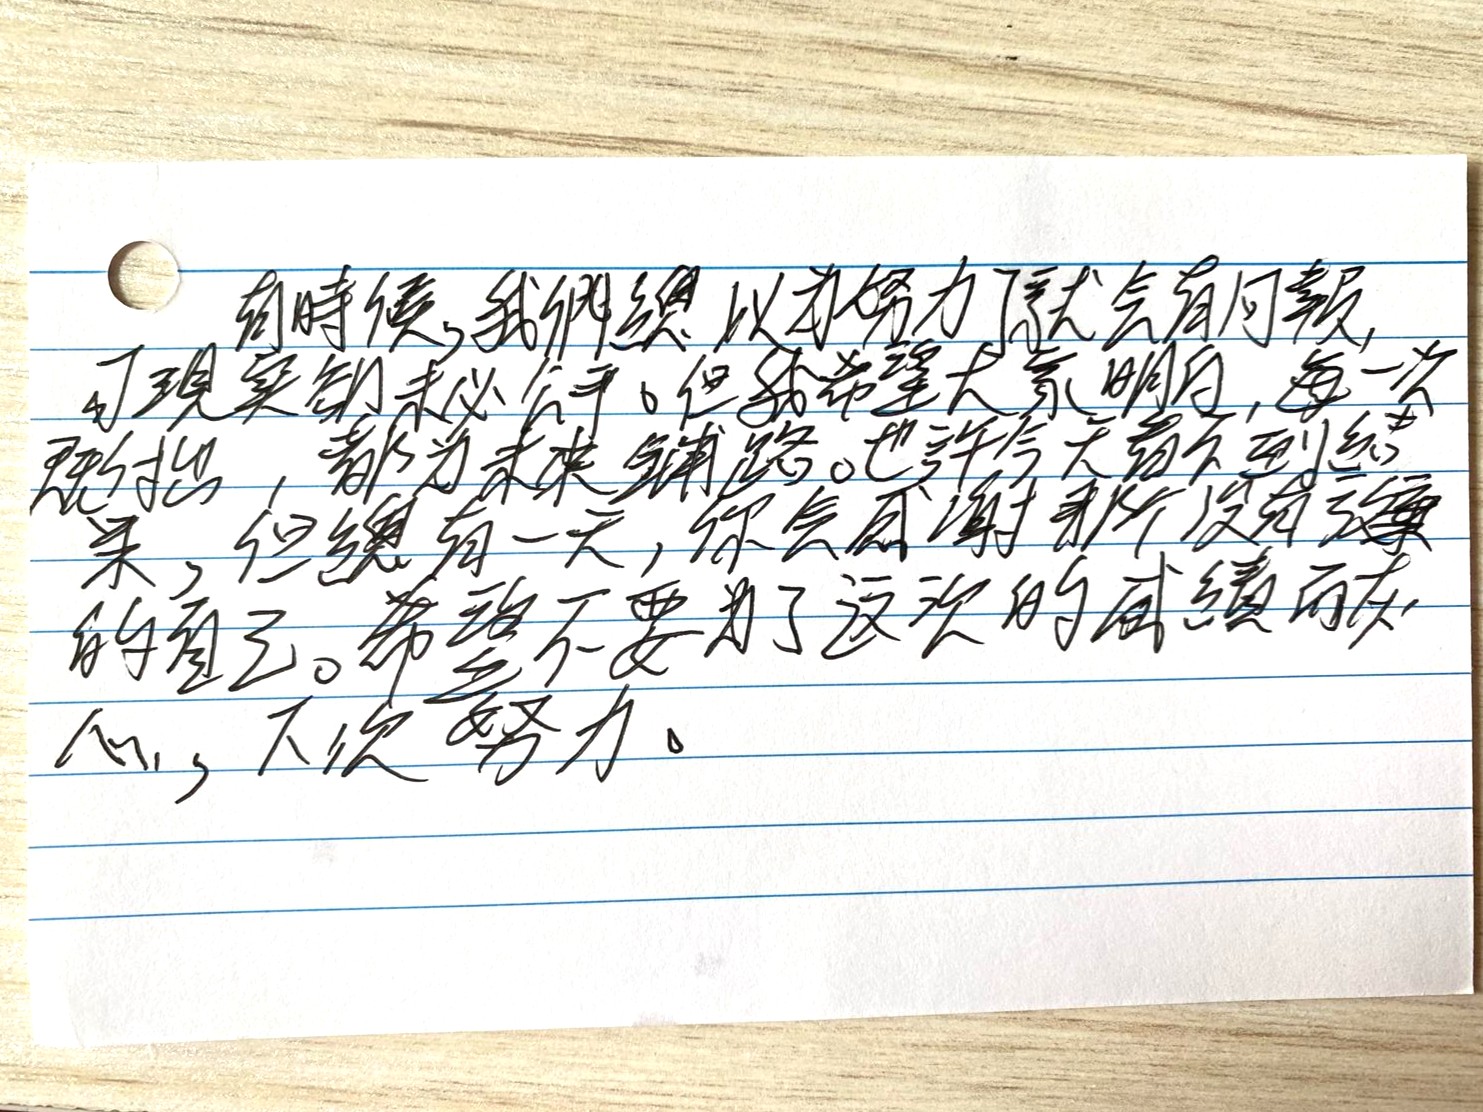 有時候，我們總以为努力了就会有回報，
可現实卻未必公平。但我希望大家明白，每一次
付出，都为未来鋪路。也許今天看不到結
果，但總有一天，你会感謝那个没有放棄
的自己。希望不要为了这次的成績而灰
心，下次努力。